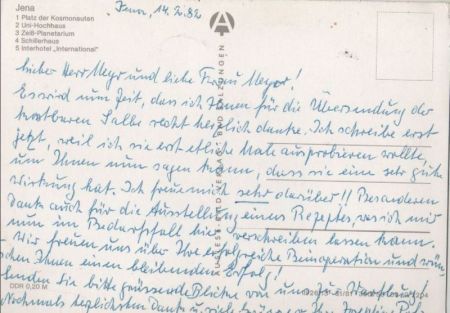 Jena
1 Platz der Kosmonauten
2 Uni-Hochhaus
3 Zeiß-Planetarium
4 Schillerhaus
5 Interhotel „International"
Jena, 14.2.82
Lieber Herr Meyer und liebe Frau Meyer!
Es wird nun Zeit, dass ich Ihnen für die Übersendung der
kostbaren Salbe recht herzlich danke. Ich schreibe erst
jetzt, weil ich sie erst etliche Male ausprobieren wollte,
um Ihnen nun sagen kann, dass sie eine sehr gute
Wirkung hat. Ich freue mich sehr darüber!! Besonderen
Dank auch für die Ausstellung eines Rezeptes, was ich mir
nun im Bedarfsfall hier verschreiben lassen kann.
Wir freuen uns über Ihre erfolgreiche Operation und wün-
schen Ihnen einen bleibenden Erfolg!
senden Sie bitte Blicke von uns zur
Nochmals herzlichsten Dank u. viele
AUSLESE-BILD-VERLAG · BAD SALZUNGEN
DDR 0,20 M